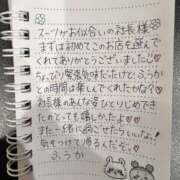 スーツがお似合いの社長様♡
まずは初めてこのお店を選んで
くれてありがとうございました♡
ちょっぴり緊張気味だったけど、ふうか
との時間は楽しんでくれたかな？
社長様のあんな姿ひとりじめでき
たのとても嬉しかったよ♡
また一緒に過ごせたらいいな！
気をつけて帰るんだぞ。
ふうか